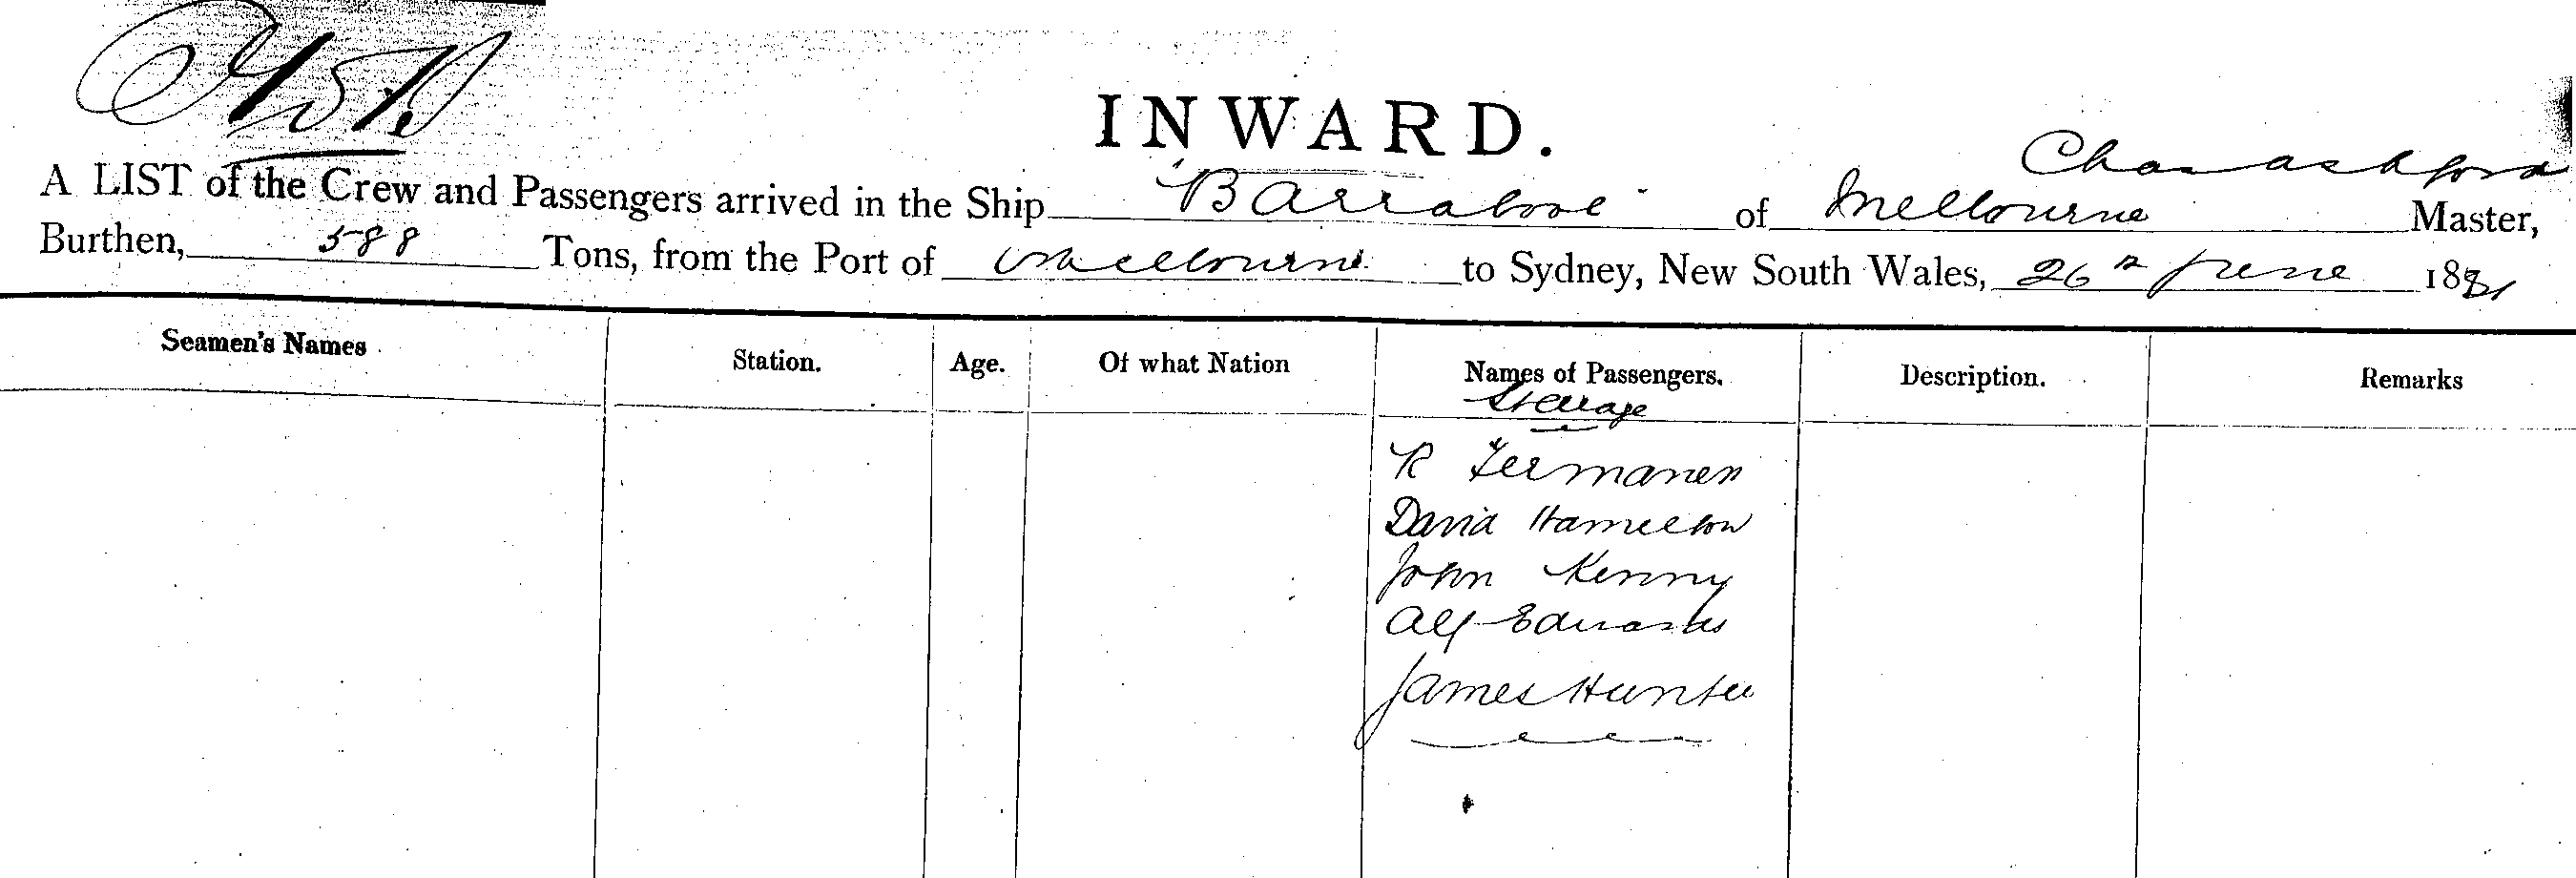 INWARD.
Chas Ashford
A LIST of the Crew and Passengers arrived in the Ship "Barrabool" of Melbourne Master,
Burthen, 588 Tons, from the Port of Melbourne to Sydney, New South Wales, 26th June 1881
Seamen's Names Station. Age. Of what Nation Names of Passengers. Description. Remarks
Steerage
R
David Hamilton
John Kenny
Alf Edwards
James Hunter